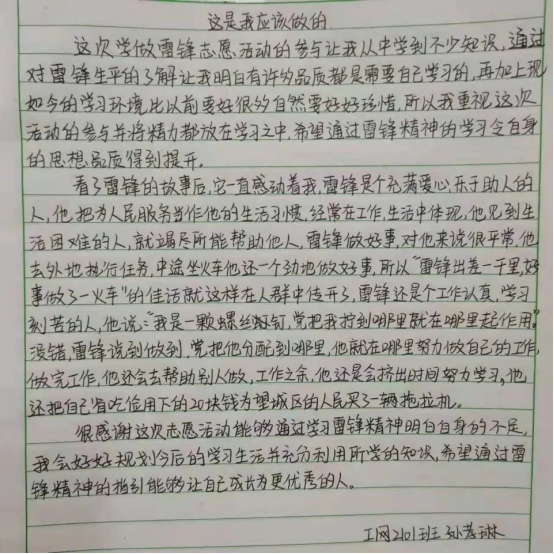 这是我应该做的
这次学做雷锋志愿活动的参与让我从中学到不少知识，通过
对雷锋生平的了解让我明白有许多品质都是需要自己学习的，再加上现
如今的学习环境比以前要好很多自然要好好珍惜，所以我重视这次
活动的参与并将精力都放在学习之中，希望通过雷锋精神的学习令自身
的思想品质得到提升。
看了雷锋的故事后，它一直感动着我，雷锋是个充满爱心，乐于助人的
人，他把为人民服务当作他的生活习惯，经常在工作，生活中体现，他见到生
活困难的人，就竭尽所能帮助他人，雷锋做好事，对他来说很平常，他
去外地执行任务，中途坐火车他还一个劲地做好事，所以“雷锋出差一千里，好
事做了一火车”的佳话就这样在人群中传开了，雷锋还是个工作认真，学习
刻苦的人，他说：“我是一颗螺丝钉，党把我拧到哪里就在哪里起作用。”
没错，雷锋说到做到，党把他分配到哪里，他就在哪里努力做自己的工作，
做完工作，他还会去帮助别人做，工作之余，他还是会挤出时间努力学习，他
还把自己省吃俭用下的20块钱为望城区的人民买了一辆拖拉机。
很感谢这次志愿活动能够通过学习雷锋精神明白自身的不足，
我会好好规划今后的学习生活并充分利用所学的知识，希望通过雷
锋精神的指引能够让自己成长为更优秀的人。
工网2101班 孙孝琳